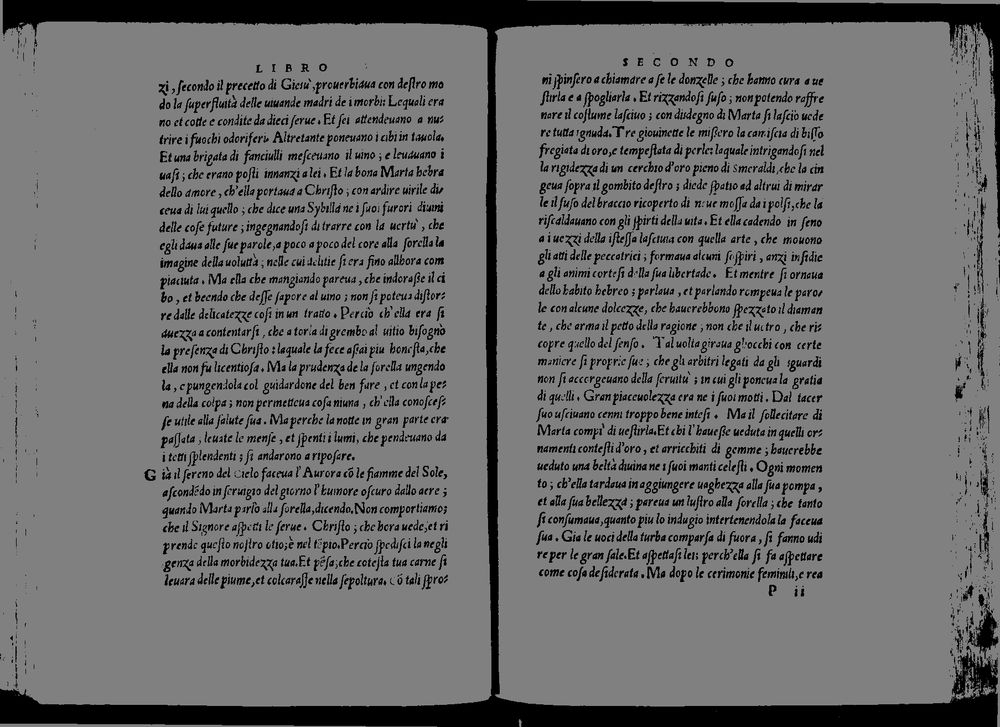 LIBRO
zi, ſecondo il precetto di Gieſu`, prouerbiaua con deſtro mo
do la ſuperfluità delle uiuande madri de i morbi: Lequali era
no et cotte e condite da dieci ſerue. Et ſei attendeuano a nu-
trire i fuochi odoriferi. Altretante poneuano i cibi in tauola.
Et una brigata di fanciulli meſceuano il uino; e leuauano i
uaſi; che erano poſti innanzi a lei. Et la bona Marta hebra
dello amore, ch'ella portaua a Chriſto; con ardire uirile di-
ceua di lui quello; che dice una Sybilla ne i ſuoi furori diuini
delle coſe future; ingegnandoſi di trarre con la uertù, che
egli daua alle ſue parole, a poco a poco del core alla ſorella la
imagine della uoluttà; nelle cui delitie ſi era fino allhora com
piaciuta. Ma ella che mangiando pareua, che indoraſſe il ci
bo, et beendo che deſſe ſapore al uino; non ſi poteua diſtor-
re dalle delicatezze coſi in un tratto. Percio ch'ella era ſi
auezza a contentarſi, che a torla di grembo al uitio biſognò
la preſenza di Chriſto: laquale la fece aſſai piu honeſta, che
ella non fu licentioſa. Ma la prudenza de la ſorella ungendo
la, e pungendola col guidardone del ben fare, et con la pe-
na della colpa; non permetteua coſa niuna, ch'ella conoſceſ-
ſe utile alla ſalute ſua. Ma perche la notte in gran parte era
paſſata, leuate le menſe, et ſpenti i lumi, che pendeuano da
i tetti ſplendenti; ſi andarono a ripoſare.
Già il ſereno del Cielo faceua l'Aurora cō le fiamme del Sole,
aſcondēdo in ſeruigio del giorno l'humore oſcuro dallo aere;
quando Marta parlò alla ſorella, dicendo. Non comportiamo;
che il Signore aſpetti le ſerue. Chriſto; che hora uede, et ri
prende queſto noſtro otio; è nel tēpio. Percio ſpediſci la negli
genza della morbidezza tua. Et pēſa; che coteſta tua carne ſi
leuara delle piume, et colcaraſſe nella ſepoltura. Cō tali ſpro-
SECONDO
ni ſpinſero a chiamare a ſe le donzelle; che hanno cura a ue
ſtirla e a ſpogliarla. Et rizzandoſi ſuſo; non potendo raffre
nare il coſtume laſciuo; con diſdegno di Marta ſi laſciò uede
re tutta ignuda. Tre giouinette le miſſero la camiſcia di biſſo
fregiata di oro, e tempeſtata di perle: laquale intrigandoſi nel
la rigidezza di un cerchio d'oro pieno di Smeraldi, che la cin
geua ſopra il gombito deſtro; diede ſpatio ad altrui di mirar
le il fuſo del braccio ricoperto di neue moſſa da i polſi, che la
riſcaldauano con gli ſpirti della uita. Et ella cadendo in ſeno
a i uezzi della iſteſſa laſciuia con quella arte, che mouono
gli atti delle peccatrici; formaua alcuni ſoſpiri, anzi inſidie
a gli animi corteſi della ſua libertade. Et mentre ſi ornaua
dello habito hebreo; parlaua, et parlando rompeua le paro-
le con alcune dolcezze, che hauerebbono ſpezzato il diaman
te, che arma il petto della ragione, non che il uetro, che ri-
copre quello del ſenſo. Tal uolta giraua gliocchi con certe
maniere ſi proprie ſue; che gli arbitri legati da gli ſguardi
non ſi accorgeuano della ſeruitu`; in cui gli poneua la gratia
di quelli. Gran piaceuolezza era ne i ſuoi motti. Dal tacer
ſuo uſciuano cenni troppo bene inteſi. Ma il ſollecitare di
Marta compi` di ueſtirla. Et chi l'haueſſe ueduta in quelli or-
namenti conteſti d'oro, et arricchiti di gemme; hauerebbe
ueduto una beltà diuina ne i ſuoi manti celeſti. Ogni momen
to; ch'ella tardaua in aggiungere uaghezza alla ſua pompa,
et alla ſua bellezza; pareua un luſtro alla ſorella; che tanto
ſi conſumaua, quanto piu lo indugio intertenendola la faceua
ſua. Gia le uoci della turba comparſa di fuora, ſi fanno udi
re per le gran ſale. Et aſpettaſi lei; perch'ella ſi fa aſpettare
come coſa deſiderata. Ma dopo le cerimonie feminili, e rea
P ii